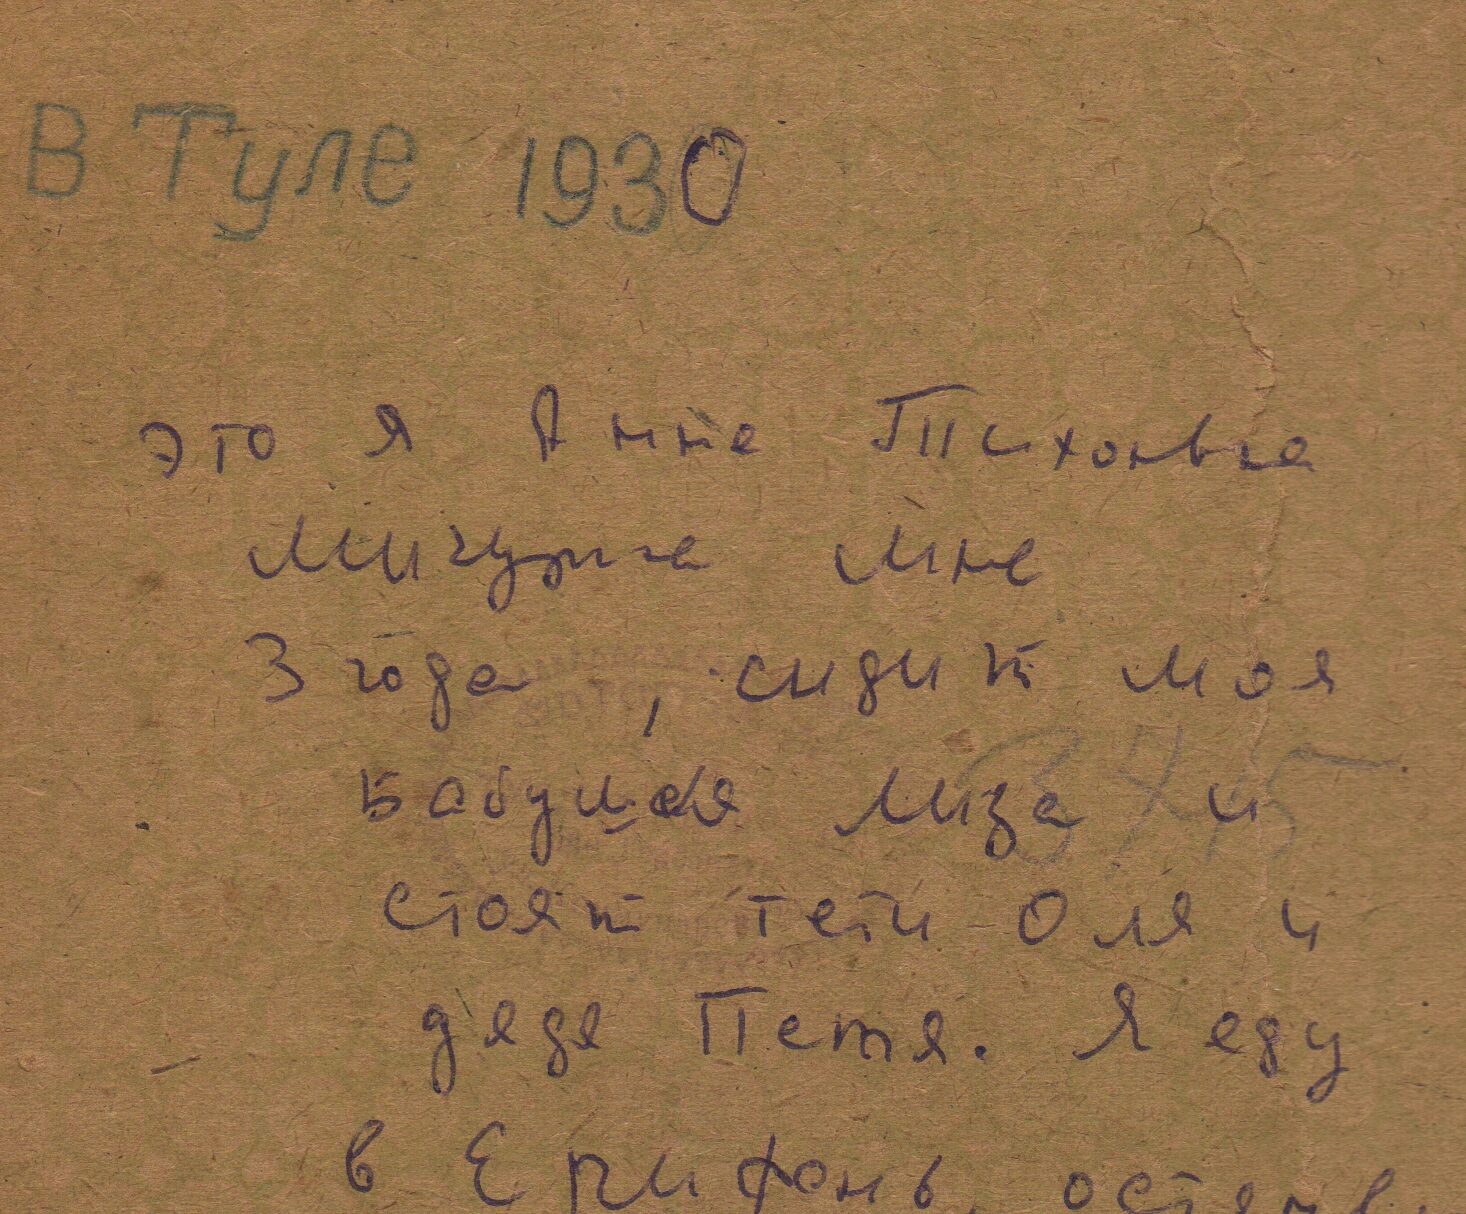 В Туле 1930
это я Анна Тихоновна
Мичурина мне
3 года, сидит моя
бабушка Лиза и
стоят тети Оля и
дядя Петя. Я еду
в Епифонь,
375